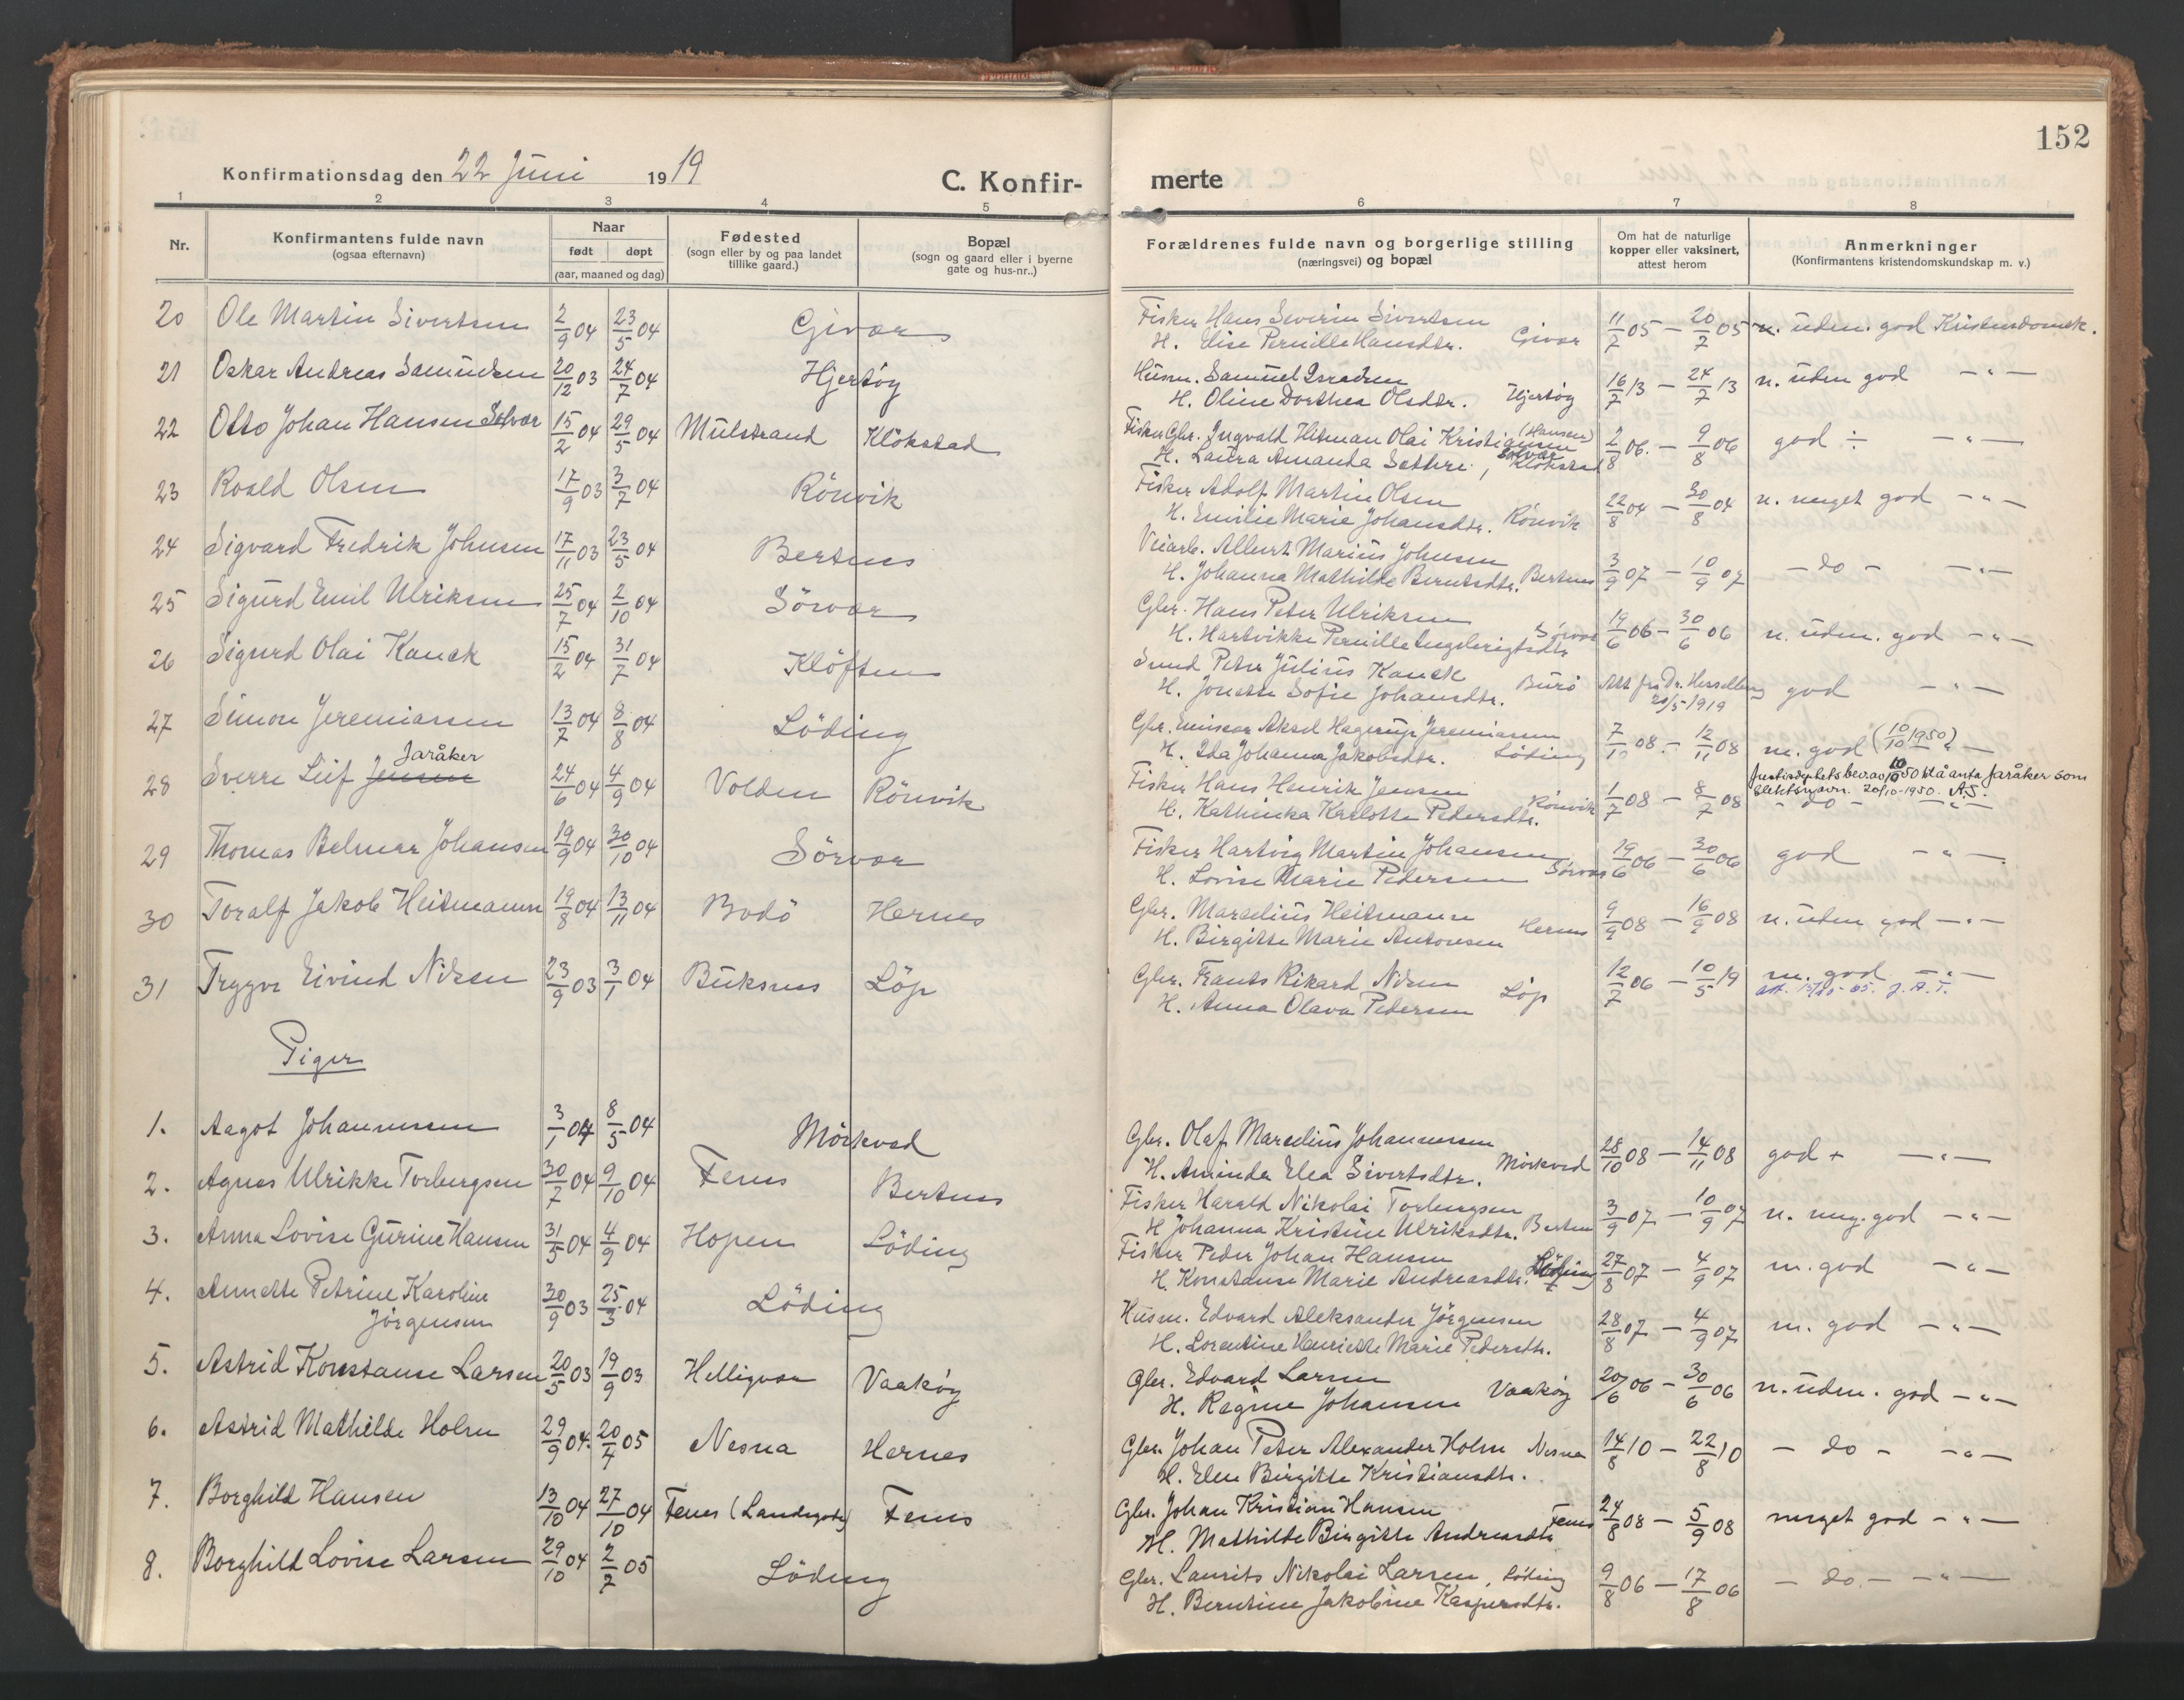 152
Konfirmationsdag den 22 Juni 1919
C. Konfir-
merte
1 2 3 4 5 6 7 8
Nr.
Konfirmantens fulde navn
(ogsaa efternavn)
Naar
født døpt
(aar, maaned og dag)
Fødested
(sogn eller by og paa landet
tillike gaard.)
Bopæl
(sogn og gaard eller i byerne
gate og hus-nr..)
Forældrenes fulde navn og borgerlige stilling
(næringsvei) og bopæl
Om hat de naturlige
kopper eller vaksinert,
attest herom
Anmerkninger
(Konfirmantens kristendomskundskap m. v.)
20 Ole Martin Sivertsen 2/9 04 23/5 04 Givær
Fisker Hans Severin Sivertsen
H. Elise Pernille Hansdtr. Givær 11/7 05 — 20/7 05 n. uden. god Kristendomsk.
21 Oskar Andreas Samuelsen 20/12 03 24/7 04 Hjertøy
Husm. Samuel Israelsen
H. Oline Dorthea Olsdtr. Hjertøy 16/7 13 — 24/7 13 n. uden god — " —
22 Otto Johan Hansen Solvær 15/2 04 29/5 04 Mulstrand Klökstad
Fisker Gbr. Ingvald Hitman Olai Kristiansen (Hansen)
H. Laura Amanda Sethre, Solvær Klökstad 2/8 06. — 9/8 06 god ÷ — " —
23 Roald Olsen 17/9 03 3/7 04 Rönvik
Fisker Adolf Martin Olsen
H. Emilie Marie Johansdtr. Rönvik 22/8 04 — 30/8 04 n. meget god — " —
24 Sigvard Fredrik Johnsen 17/11 03 23/5 04 Bertnes
Veiarb. Albert Marius Johnsen
H. Johanna Mathilde Berntsdtr. Bertnes 3/9 07 — 10/9 07 — do — — " —
25 Sigurd Emil Ulriksen 25/7 04 2/10 04 Sörvær
Gbr. Hans Peter Ulriksen
H. Hartvikke Pernille Engebrigtsdtr Sörvær 19/6 06 — 30/6 06 n. uden. god — " —
26 Sigurd Olai Kanck 15/2 04 31/7 04 Klöften
Smed Peter Julius Kanck
H. Jonette Sofie Johansdtr. Burö Att fra Dr. Hesselberg god — " —
20/5 1919
27 Simon Jeremiassen 13/7 04 8/8 04 Löding
Gbr. Emissær Aksel Hagerup Jeremiassen
H. Ida Johanna Jakobsdtr. Löding 7/10 08. — 12/11 08 m. god (10/10 1950) " —
Jaråker
28 Sverre Leif Jensen 24/6 04 4/9 04 Volden Rönvik
Fisker Hans Henrik Jensen
H. Kathinka Karlotte Pedersdtr. Rönvik 1/7 08 — 8/7 08 — do — — " —
Justisdeptets bev. av 10/10 50 til å anta Jaråker som
slektsnavn. 20/10-1950. A.S.
29 Thomas Belmar Johansen 19/9 04 30/10 04 Sörvær
Fisker Hartvig Martin Johansen
H. Lovise Marie Pedersen Sörvær 19/6 06 — 30/6 06 god — " —
30 Toralf Jakob Heitmann 19/8 04 13/11 04 Bodö Hernes
Gbr. Marselius Heitmann
H. Birgitte Marie Antonsen Hernes 9/9 08 — 16/9 08 n. uden god — " —
31 Trygve Eivind Nilsen 23/9 03 3/1 04 Buksnes Löp
Gbr. Frants Rikard Nilsen
H. Anna Olava Pedersen Löp 12/7 06 — 10/5 19 m. god — " —
att. J. A. T.
Piger
1. Aagot Johannessen 3/1 04 8/5 04 Mörkved
Gbr. Olaf Marselius Johannessen
H. Aminda Elea Sivertsdtr. Mörkved 28/10 08 — 14/11 08 god + — " —
2. Agnes Ulrikke Torbergsen 30/7 04 9/10 04 Fenes Bertnes
Fisker Harald Nikolai Torbergsen
H Johanna Kristine Ulriksdtr. Bertnes 3/9 07 — 10/9 07 n. meg. god — " —
3. Anna Lovise Gurine Hansen 31/5 04 4/9 04 Hopen Löding
Fisker Peder Johan Hansen
H. Konstanse Marie Andreasdtr. Löding 27/8 07 — 4/9 07 m. god — " —
4. Annette Petrine Karoline
Jörgensen 30/9 03 25/3 04 Löding
Husm. Edvard Aleksander Jörgensen
H. Lorentine Henriette Marie Pedersdtr. 28/8 07 — 4/9 07 m. god — " —
5. Astrid Konstanse Larsen 20/5 03 19/9 03 Helligvær Vaakøy
Gbr. Edvard Larsen
H. Regine Johansen Vaakøy 20/6 06 — 30/6 06 n. uden. god — " —
6. Astrid Mathilde Holm 29/9 04. 20/7 05 Nesna Hernes
Gbr. Johan Peter Alexander Holm Nesna
H. Elen Birgitte Kristiansdtr. 14/8 10 — 22/8 10 — do — — " —
7. Borghild Hansen 13/10 04 27/10 04 Fenes (Landegode) Fenes
Gbr. Johan Kristian Hansen
H. Mathilde Birgitte Andreasdtr Fenes 24/8 08 — 5/9 08 meget god — " —
8. Borghild Lovise Larsen 29/10 04 2/7 05 Löding
Gbr. Laurits Nikolai Larsen, Löding
H. Berntine Jakobine Kaspersdtr. 9/8 06 — 17/8 06 — do. — — " —